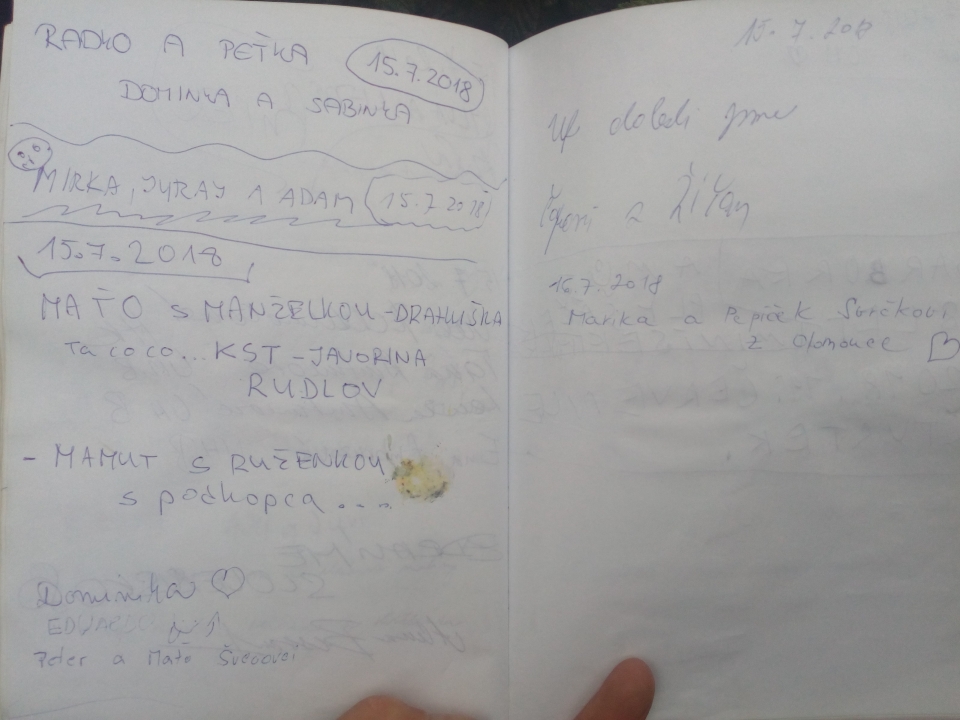 RADKO A PEŤKA
15.7.2018
DOMINKA A SABINKA
MIRKA, JURAJ A ADAM (15.7 2018)
15.7.2018
MAŤO S MANŽELKOU-DRAHUŠKA
Ta co co... KST-JAVORINA
RUDLOV
- MAMUT S RUŽENKOU
s podkopca ....
Dominika ♡
Peter a Maťo
15.7.2018
Uf došli jsme
z
16.7.2018
Marika a Pepíček
z Olomouce ♡